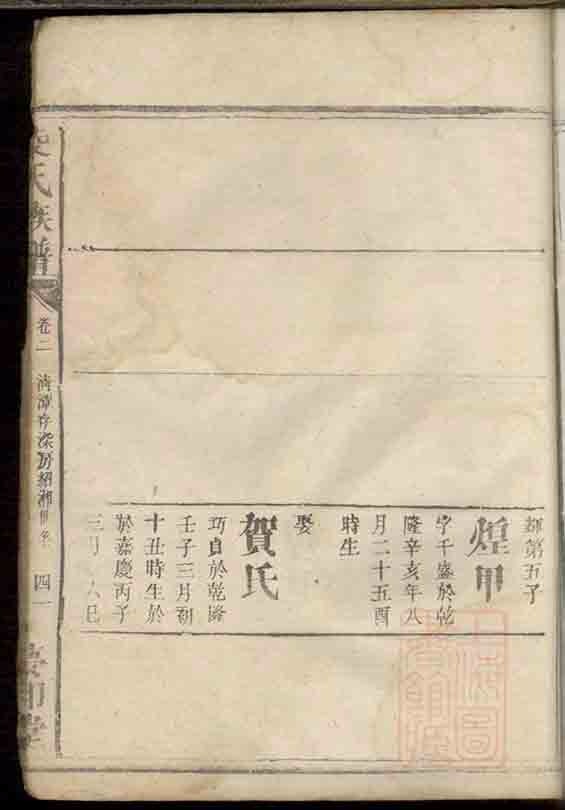 第五子
煌甲
字千盛於乾
隆辛亥年八
月二十五酉
時生
娶
賀氏
巧貞於乾隆
壬子三月初
十丑時生於
於嘉慶丙子
三月 六巳
氏族譜
卷二
清潭存深房紹湘
四一